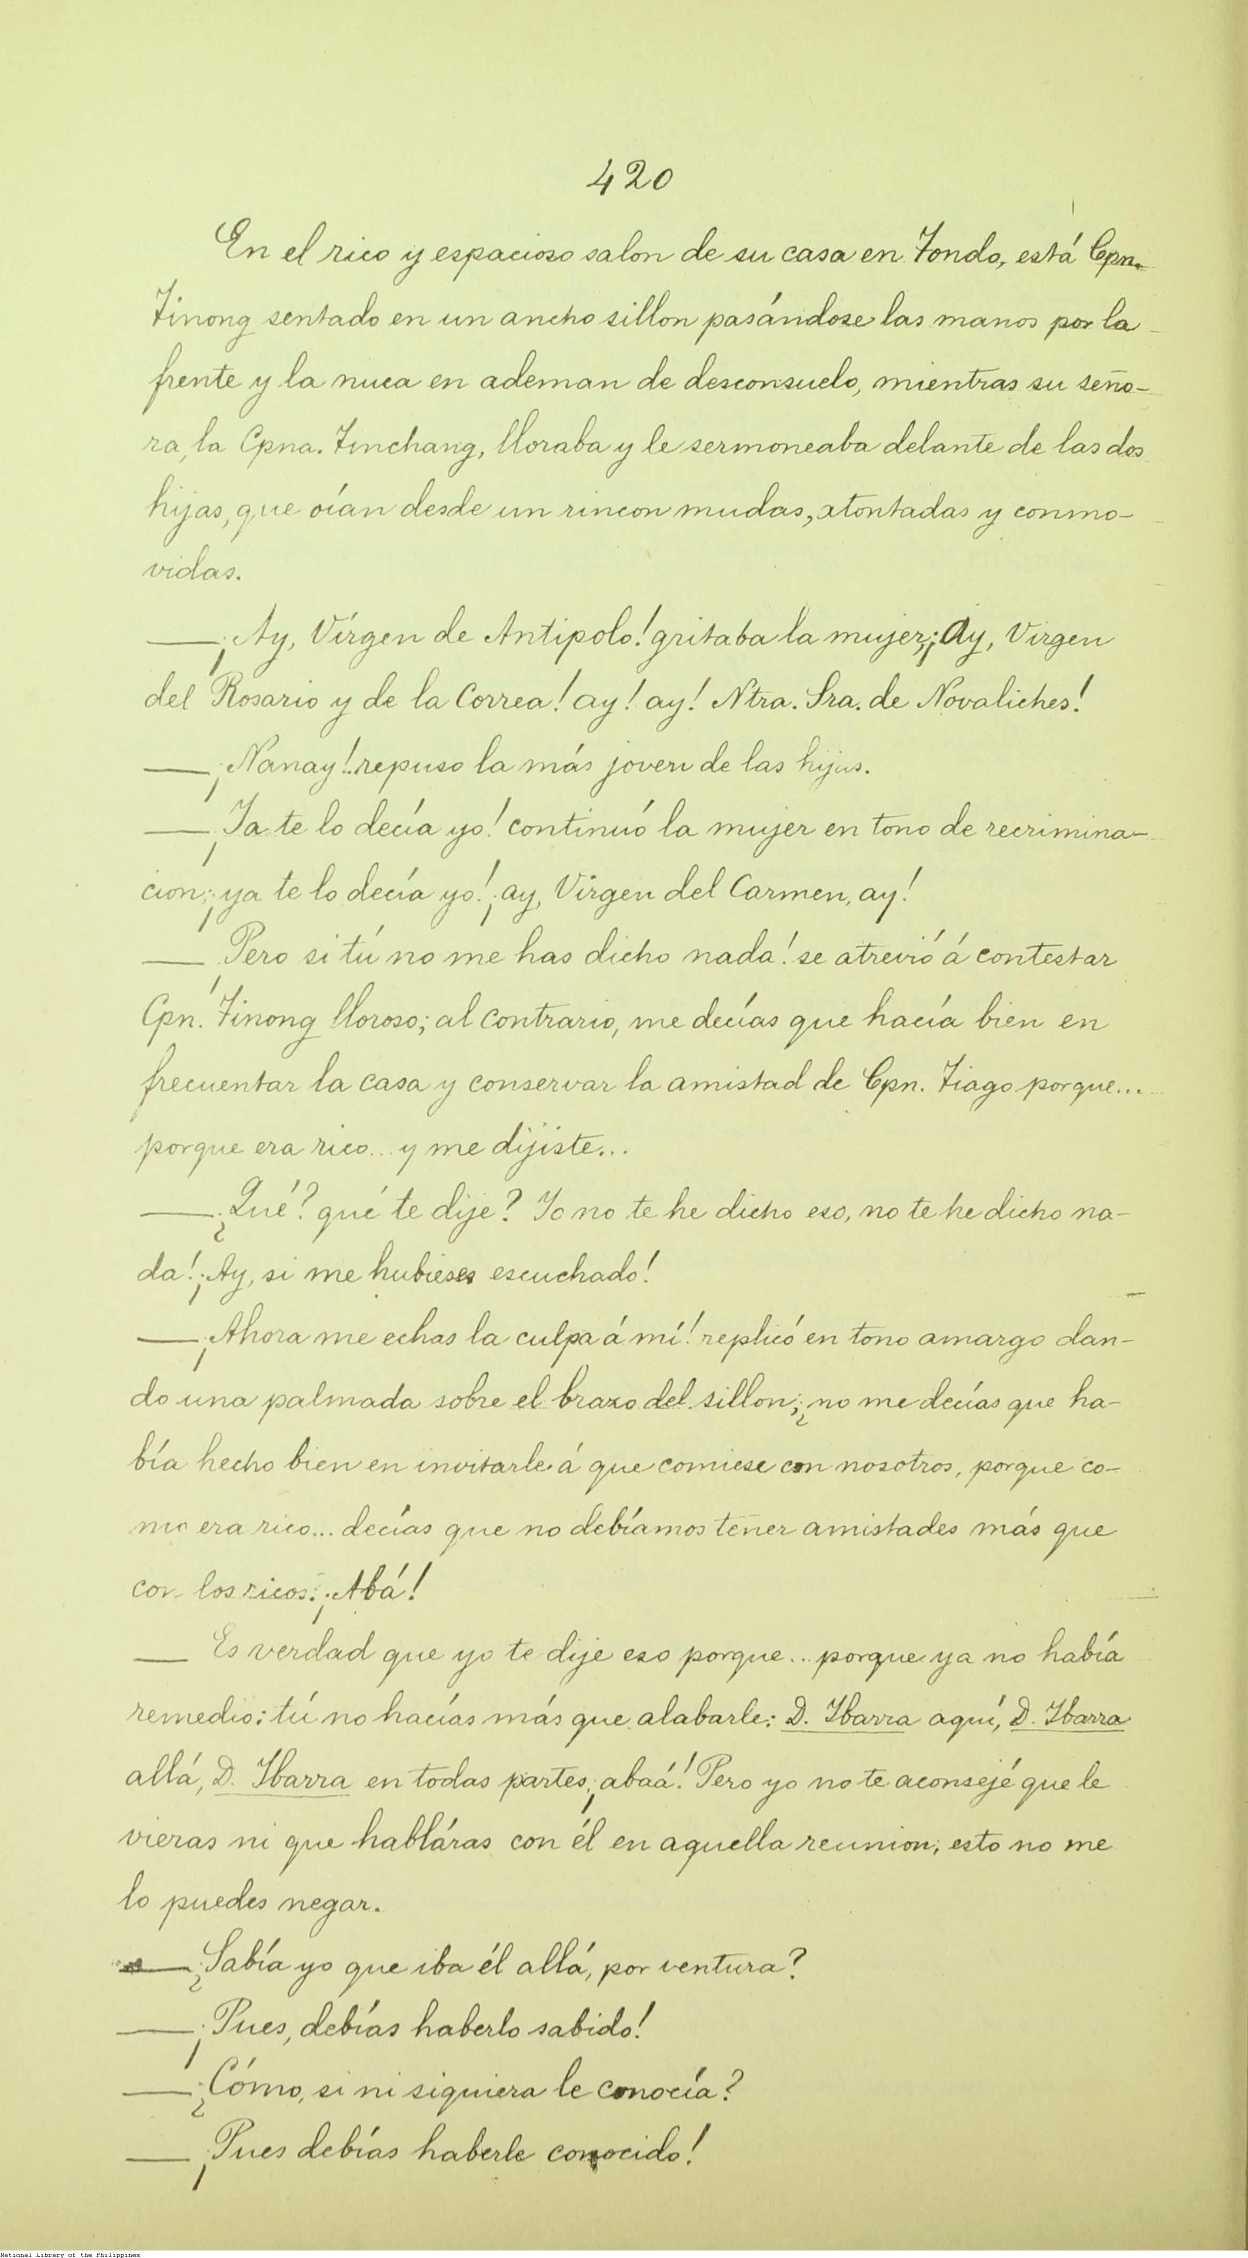 420
En el rico y espacioso salon de su casa en Tondo, está Cpn.
Tinong sentado en un ancho sillon pasándose las manos por la
frente y la nuca en ademan de desconsuelo, mientras su seño-
ra, la Cpna. Tinchang, lloraba y le sermoneaba delante de las dos
hijas, que oían desde un rincon mudas, atontadas y conmo-
vidas.
—¡Ay, Vírgen de Antipolo! gritaba la mujer; ¡Ay, Virgen
del Rosario y de la Correa! ay! ay! Ntra. Sra. de Novaliches!
—¡Nanay!.. repuso la más joven de las hijas.
—¡Ya te lo decía yo! continuó la mujer en tono de recrimina-
cion; ¡ya te lo decía yo! ¡ay, Vírgen del Carmen, ay!
—¡Pero si tú no me has dicho nada! se atrevió á contestar
Cpn. Tinong lloroso; al contrario, me decías que hacía bien en
frecuentar la casa y conservar la amistad de Cpn. Tiago porque...
porque era rico... y me dijiste...
—¿Qué? qué te dije? Yo no te he dicho eso, no te he dicho na-
da! ¡Ay, si me hubieses escuchado!
—¡Ahora me echas la culpa á mí! replicó en tono amargo dan-
do una palmada sobre el brazo del sillon; ¿no me decías que ha-
bía hecho bien en invitarle á que comiese con nosotros, porque co-
mo era rico... decías que no debíamos tener amistades más que
con los ricos? ¡Abá!
— Es verdad que yo te dije eso porque... porque ya no había
remedio: tú no hacías más que alabarle: D. Ibarra aquí, D. Ibarra
allá, D. Ibarra en todas partes, ¡abaá! Pero yo no te aconsejé que le
vieras ni que habláras con él en aquella reunion; esto no me
lo puedes negar.
—¿Sabía yo que iba él allá, por ventura?
—¡Pues, debías haberlo sabido!
—¿Cómo, si ni siquiera le conocía?
—¡Pues debías haberle conocido!
National Library of the Philippines